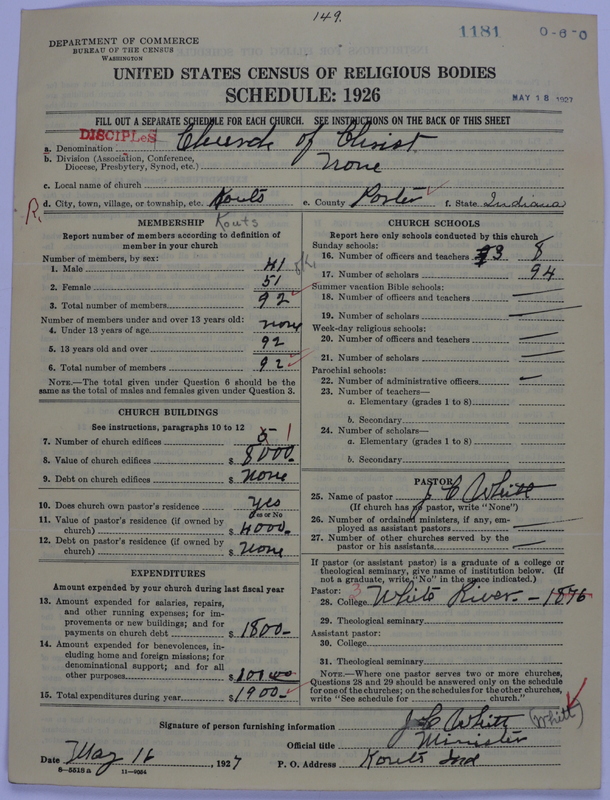 149.
1181
0-6-0
DEPARTMENT OF COMMERCE
BUREAU OF THE CENSUS
WASHINGTON
UNITED STATES CENSUS OF RELIGIOUS BODIES
SCHEDULE: 1926
MAY 18 1927
FILL OUT A SEPARATE SCHEDULE FOR EACH CHURCH. SEE INSTRUCTIONS ON THE BACK OF THIS SHEET
DISCIPLeS
a. Denomination Church of Christ
b. Division (Association, Conference, Diocese, Presbytery, Synod, etc.) None
c. Local name of church
R. d. City, town, village, or township, etc. Kouts e. County Porter f. State Indiana
Kouts
MEMBERSHIP
Report number of members according to definition of
member in your church
Number of members, by sex:
1. Male 41
2. Female 51
3. Total number of members 92
Number of members under and over 13 years old:
4. Under 13 years of age none
5. 13 years old and over 92
6. Total number of members 92
NOTE.—The total given under Question 6 should be the
same as the total of males and females given under Question 3.
CHURCH BUILDINGS
See instructions, paragraphs 10 to 12
7. Number of church edifices 1
8. Value of church edifices $ 8000.
9. Debt on church edifices $ None
10. Does church own pastor's residence? yes
Yes or No
11. Value of pastor's residence (if owned by
church) $ 4000-
12. Debt on pastor's residence (if owned by
church) $ None
EXPENDITURES
Amount expended by your church during last fiscal year
13. Amount expended for salaries, repairs,
and other running expenses; for im-
provements or new buildings; and for
payments on church debt $ 1800-
14. Amount expended for benevolences, in-
cluding home and foreign missions; for
denominational support; and for all
other purposes $ 100 00
15. Total expenditures during year $ 1900-
CHURCH SCHOOLS
Report here only schools conducted by this church
Sunday schools:
16. Number of officers and teachers 8
17. Number of scholars 94
Summer vacation Bible schools:
18. Number of officers and teachers
19. Number of scholars
Week-day religious schools:
20. Number of officers and teachers
21. Number of scholars
Parochial schools:
22. Number of administrative officers
23. Number of teachers—
a. Elementary (grades 1 to 8)
b. Secondary
24. Number of scholars—
a. Elementary (grades 1 to 8)
b. Secondary
PASTOR
25. Name of pastor J C Whitt
(If church has no pastor, write "None")
26. Number of ordained ministers, if any, em-
ployed as assistant pastors
27. Number of other churches served by the
pastor or his assistants
If pastor (or assistant pastor) is a graduate of a college or
theological seminary, give name of institution below. (If
not a graduate, write "No" in the space indicated.)
Pastor: 3
28. College White River - 1876
29. Theological seminary
Assistant pastor:
30. College
31. Theological seminary
NOTE.—Where one pastor serves two or more churches,
Questions 28 and 29 should be answered only on the schedule
for one of the churches; on the schedules for the other churches,
write "See schedule for church."
Signature of person furnishing information J C Whitt (Whitt)
Official title Minister
Date May 16, 1927 P. O. Address Kouts Ind
8—5518 a 11—9054